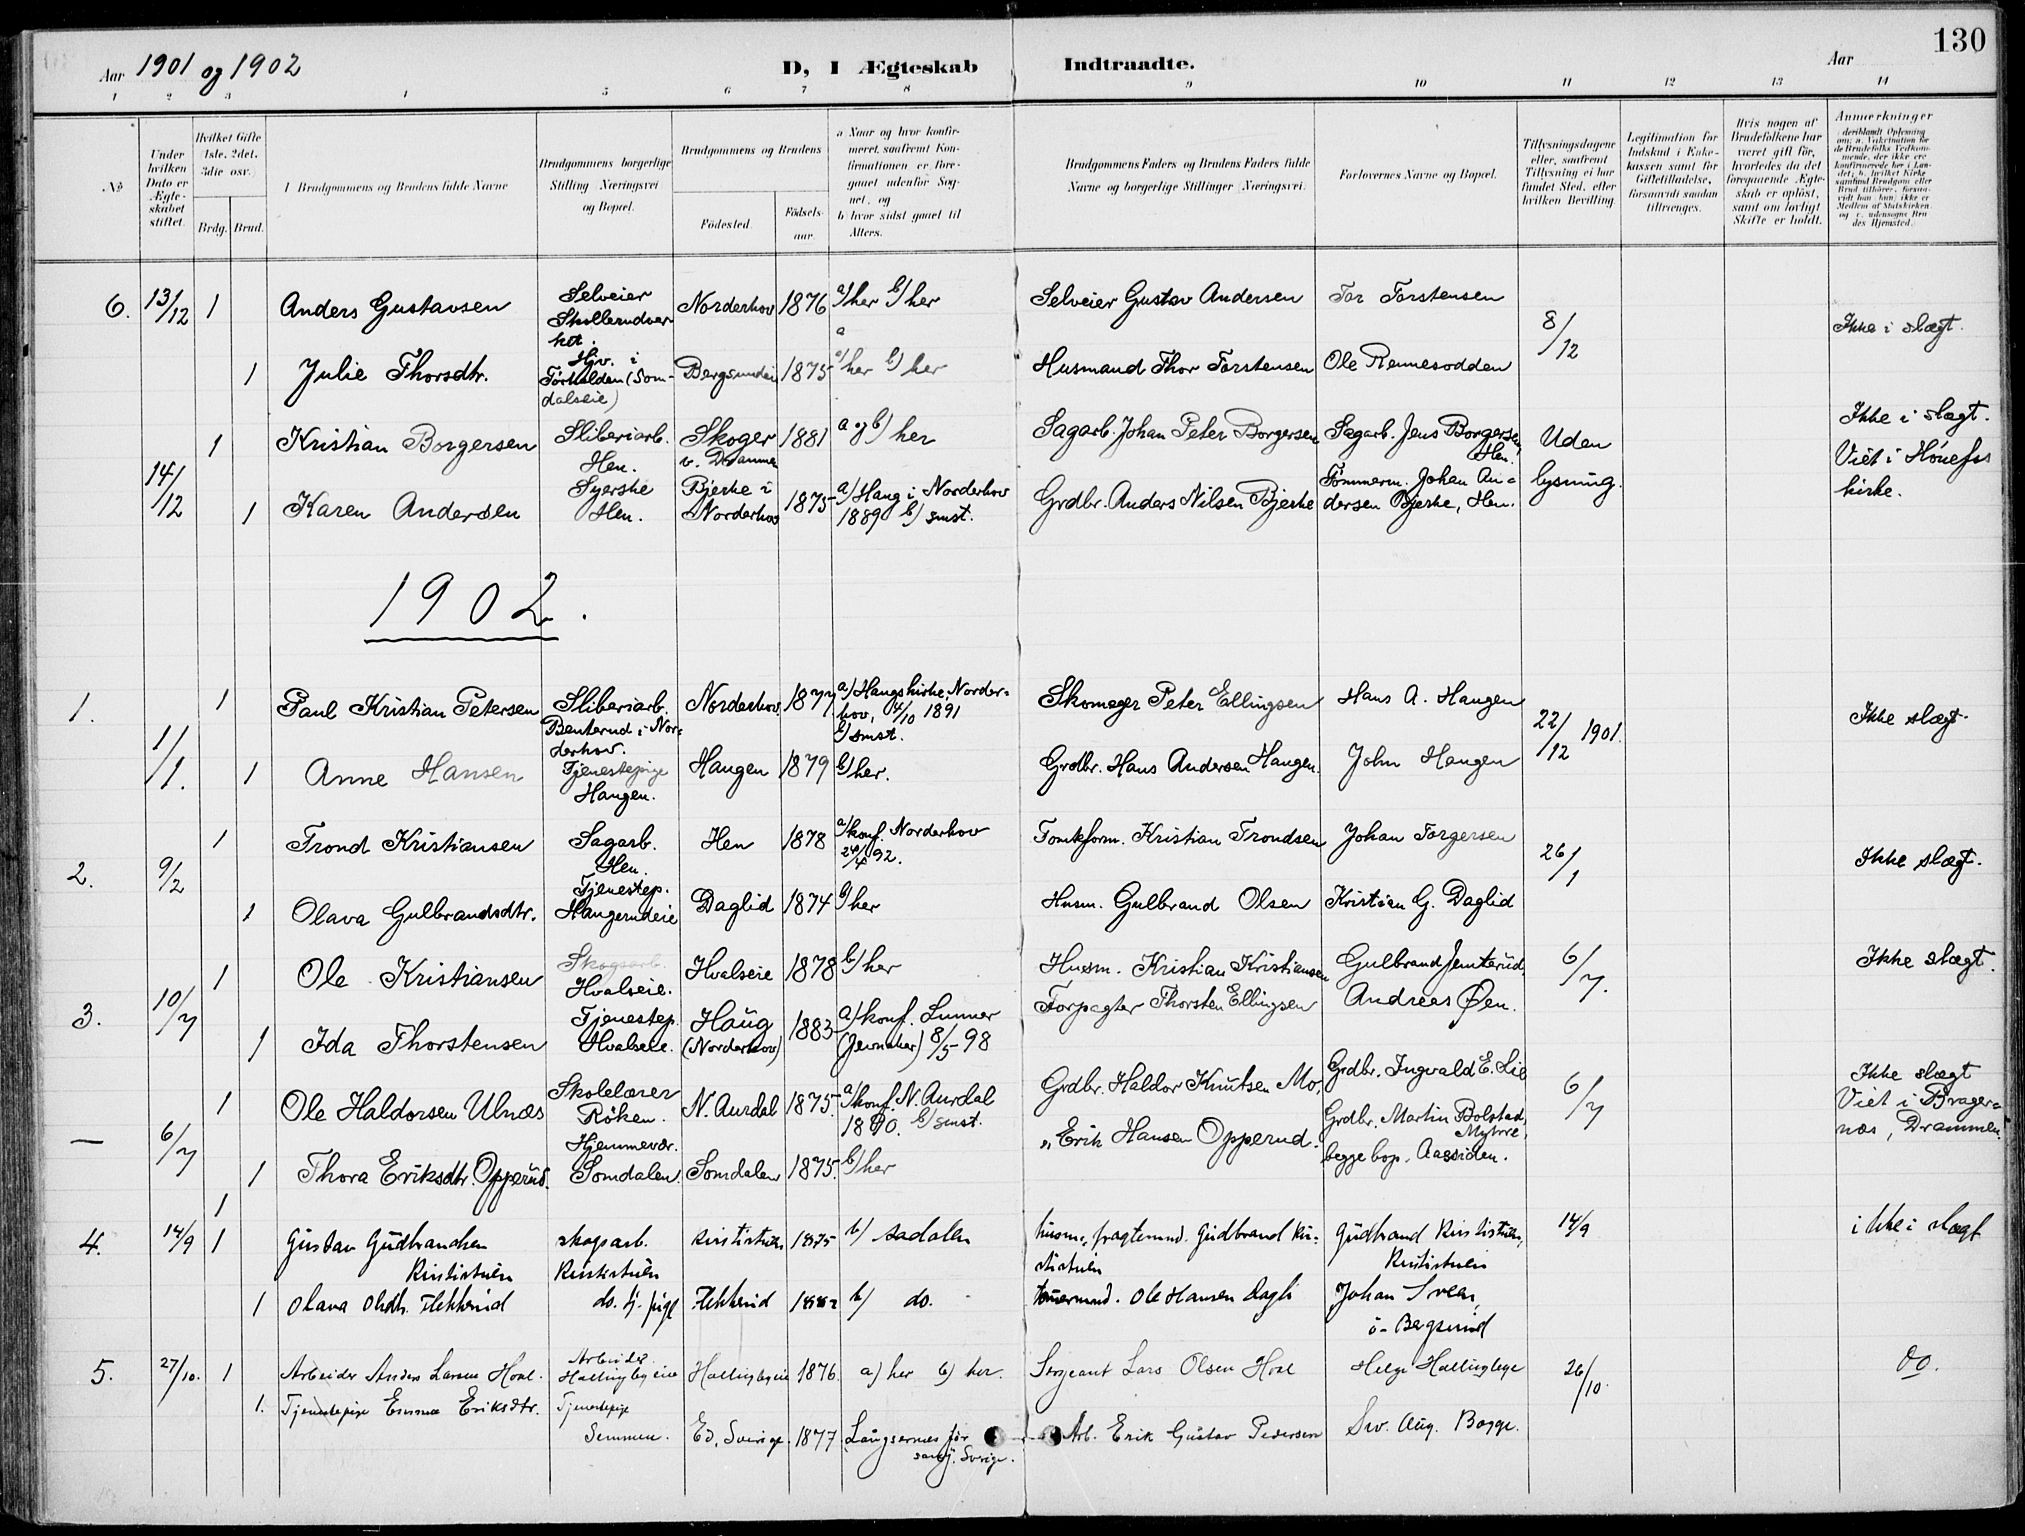 130
Aar 1901 og 1902
D, I Ægteskab Indtraadte.
Aar
1 2 3 4 5 6 7 8 9 10 11 12 13 14
No
Under hvilken Dato er Ægteskabet stiftet.
Hvilket Gifte 1ste, 2det, 3die osv.
Brdg. Brud.
Brudgommens og Brudens fulde Navne
Brudgommens borgerlige Stilling Næringsvei og Bopæl.
Brudgommens og Brudens
Fødested.
Fødsels-aar.
a Naar og hvor konfirmeret, saafremt Konfirmationen er foregaaet udenfor Sognet, og
b hvor sidst gaaet til Alters.
Brudgommens Faders og Brudens Faders fulde Navne og borgerlige Stillinger (Næringsvei.
Forlovernes Navne og Bopæl.
Tillysningsdagene eller, saafremt Tillysning ei har fundet Sted, efter hvilken Bevilling.
Legitimation for Indskud i Enkekassen samt for Giftetilladelse, forsaavidt saadan tiltrænges.
Hvis nogen af Brudefolkene har været gift før, hvorledes da det foregaaende Ægteskab er opløst, samt om lovligt Skifte er holdt.
Anmerkninger
6. 13/12 1 Anders Gustavsen Selveier Norderhov 1876 a) her b) her Selveier Gustav Andersen Tor Torstensen 8/12 Ikke i slægt.
1 Julie Thorsdtr. Hjv. i 1875 a) her b) her Husmand Thor Torstensen Ole Rennesodden
14/12 1 Kristian Borgersen Sliberiarb. Hen. Skoger v. Drammen 1881 a og b) her Sagarb. Johan Peter Borgersen Sagarb. Jens Borgersen, Hen. Uden lysning. Ikke i slægt. Viet i Hønefos kirke.
1 Karen Andersen Syerske Hen. Bjerke i Norderhov 1875 a) Haug i Norderhov 1889 b) smst. Grdbr. Anders Nilsen Bjerke Tømmerm. Johan Andersen Bjerke, Hen.
1902.
1. 1/1. 1 Paul Kristian Petersen Sliberiarb. Benterud i Norderhov. Norderhov. 1877 a) Haugs kirke, Norderhov, 4/10 1891 b) smst. Skomager Peter Ellingsen Hans A. Haugen 22/12 1901. Ikke slægt.
1 Anne Hansen Tjenestepige Haugen. Haugen 1879 b) her. Grdbr. Hans Andersen Haugen. John Haugen
2. 9/2 1 Trond Kristiansen Sagarb. Hen. Hen 1878 a) konf. Norderhov 92. Tomtform. Kristian Trondsen Johan Torgersen 26/1 Ikke slægt.
1 Olava Gulbrandsdtr. Tjenestep. Haugerudeie Daglid 1874 b) her Husm. Gulbrand Olsen Kristian G. Daglid
3. 10/7 1 Ole Kristiansen Skogsarb. Hvalseie. Hvalseie 1878 b) her Husm. Kristian Kristiansen Gulbrand 6/7. Ikke slægt.
1 Ida Thorstensen Tjenestep. Hvalseie. Haug (Norderhov) 1883 a) konf. Lunner (Jevnaker) 8/5 98 Forpagter Thorsten Ellingsen Andreas Øen.
— 6/7 1 Ole Haldorsen Ulnæs Skolelærer Röken. N. Aurdal 1875. a) konf. N. Aurdal 1890. b) smst. Grdbr. Haldor Knutsen Mo, Grdbr. Ingvald E. Lie 6/7 Ikke slægt Viet i Bragernæs, Drammen.
1 Thora Eriksdtr. Opperud. Hjemmevær. Somdalen. Somdalen 1875. b) her " Erik Hansen Opperud. Grdbr. Martin Bolstad, Myhre, begge bop. Aassiden.
1
4. 14/9 1 Gustav Gudbrandsen skogsarb. 1875 b) aadalen husm. Gudbrand Gudbrand 14/9 ikke i slægt
1 Olava Olsdtr. Flekkerud do. tj. pige Flekkerud 1882 b) do. Ole Hansen Dagli Johan Sveen,
5. 27/10. 1 Arbeider Anders Larsen Hval. Arbeider Hallingbyeie Hallingbyeie 1876. a) her b) her. Sergeant Lars Olsen Hval Helge Hallingbye 26/10. do.
1. Tjenestepige Emma Eriksdtr. Tjenestepige Semmen. Ed, Sverige. 1877 Arb. Erik Gustav Pedersen Aug. Bagge.